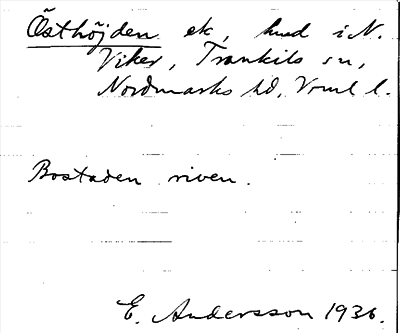 Östhöjden ek, hmd i N.
Viker, Trankils sn,
Nordmarks hd, Vrml l.
Bostaden riven.
E. Andersson 1936.